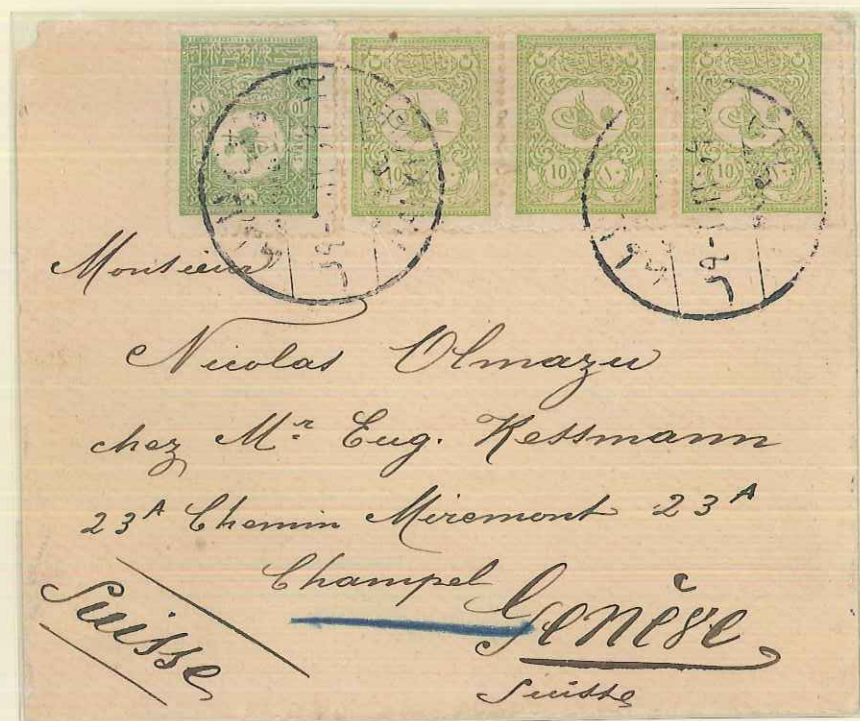 10 10 10
Monsieur
Nicolas Olmazu
chez Mr Eug. Kessmann
23A Chemin Miremont 23A
Champel
Genève
Suisse
Suisse